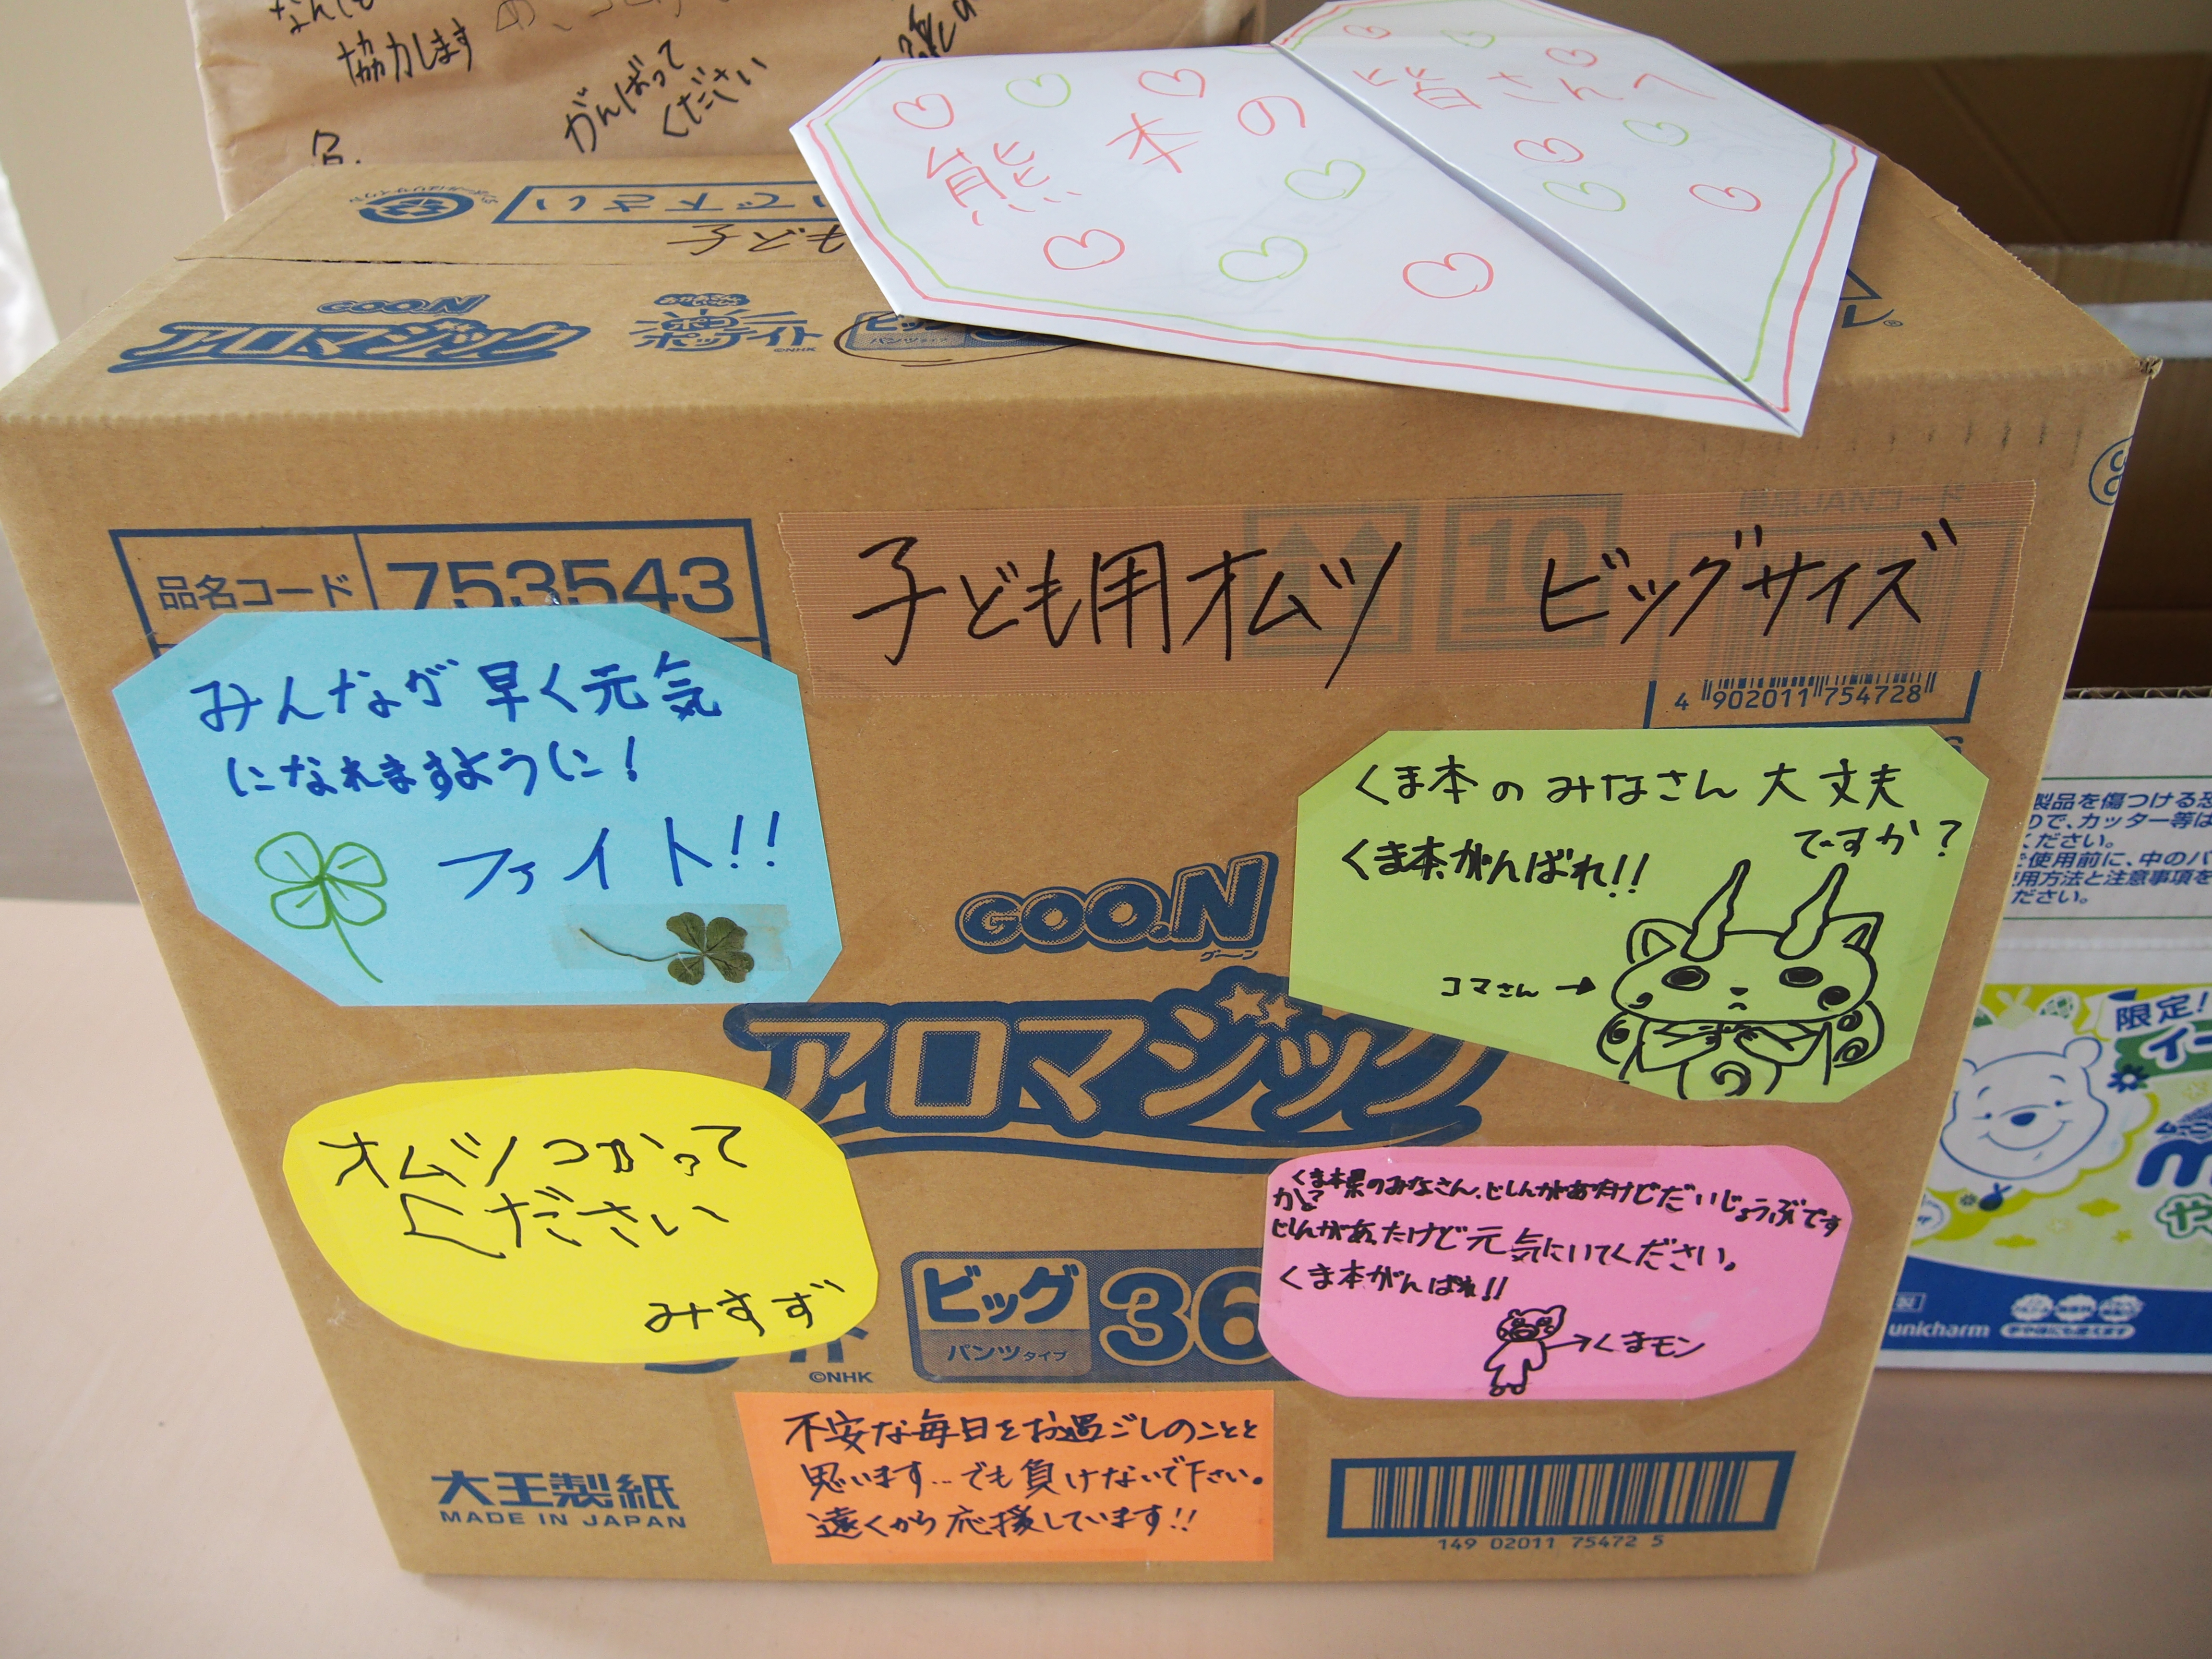 協力します
がんばって
ください
熊本の
皆さんへ
いで下さい
GOO.N
アロマジック
ポコポッテイト
©NHK
パンツタイプ
品名コード 753543
子ども用オムツ ビッグサイズ
10
4 902011 754728
みんなが早く元気
になれますように!
ファイト!!
くま本のみなさん大丈夫
ですか?
くま本がんばれ!!
コマさん→
GOO.N
グ〜ン
アロマジック
オムツつかって
ください
みすず
くま本県のみなさん、じしんがあたけどだいじょうぶです
かと
じしんがあったけど元気にいてください。
くま本がんばれ!!
→くまモン
ビッグ 36
パンツタイプ
©NHK
不安な毎日をお過ごしのことと
思います…でも負けないで下さい。
遠くから応援しています!!
大王製紙
MADE IN JAPAN
149 02011 75472 5
製品を傷つける恐
ので、カッター等は
ください。
使用前に、中のパ
用方法と注意事項を
ださい。
限定!
unicharm